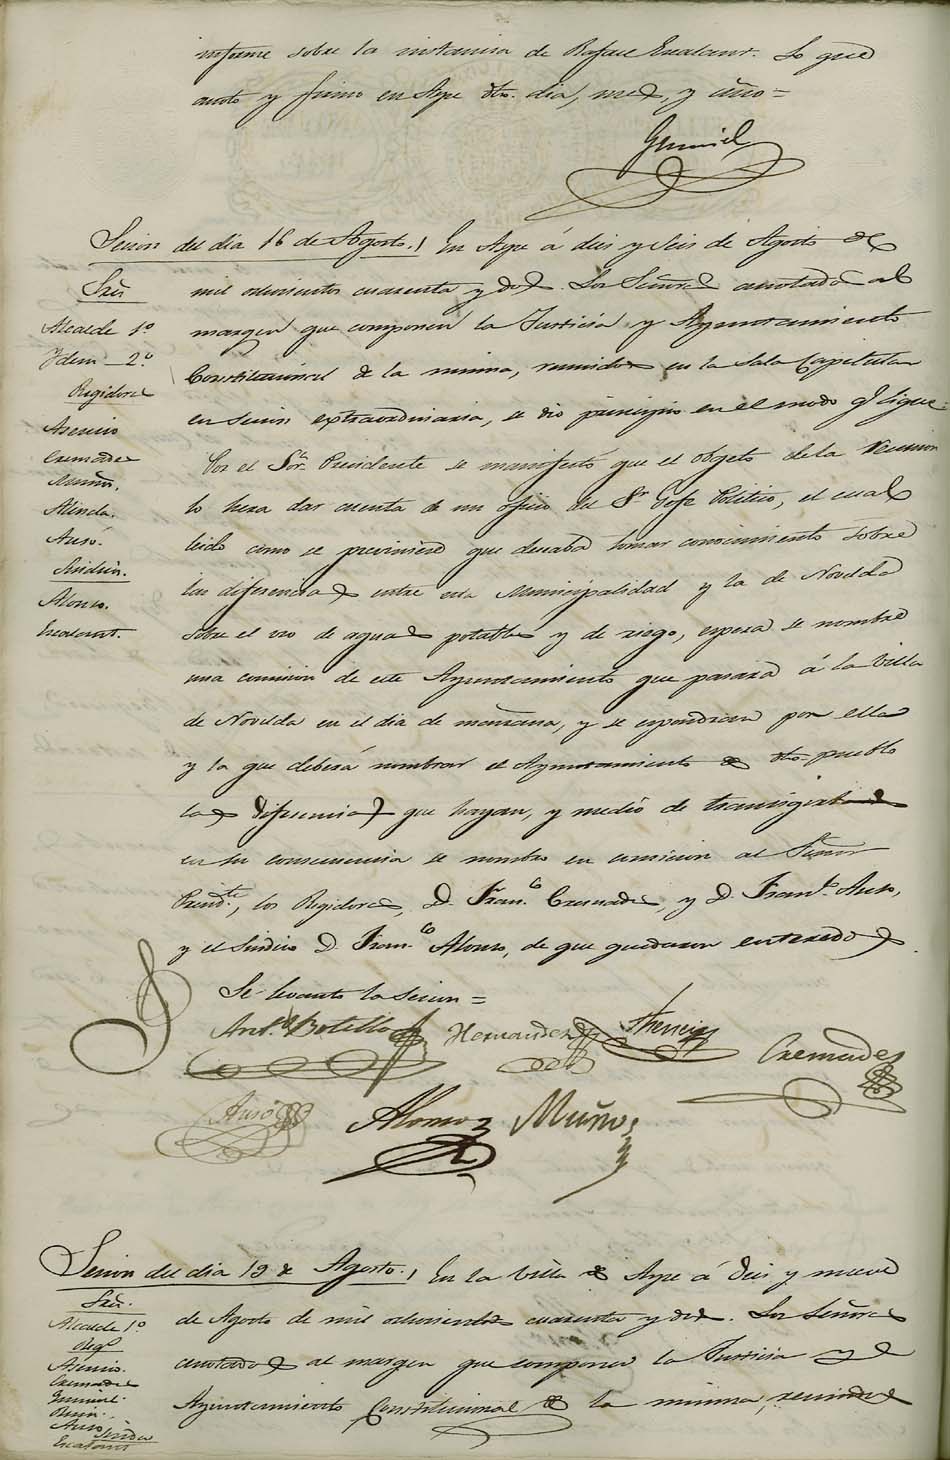 informe sobre la instancia de Rafael Escalant. Lo que
anoto y firmo en Aspe dho. dia, mes, y año =
Sesion del dia 16 de Agosto. En Aspe á diez y seis de Agosto de
mil ochocientos cuarenta y dos. Los Señores anotados al
margen que componen la Justicia y Ayuntamiento
Constitucional de la misma, reunidos en la Sala Capitular
en sesion extraordinaria, se dio principio en el modo q.e sigue:
Por el Sor. Presidente se manifestó que el objeto de la reunion
lo hera dar cuenta de un oficio del Sr. Gefe Politico, el cual
leido como se previniese que deseaba tomar conocimiento sobre
las diferencias entre esta Municipalidad y la de Novelda
sobre el uso de aguas potables y de riego, espera se nombre
una comision de este Ayuntamiento que pasará á la Villa
de Novelda en el dia de mañana, y se espondran por ella
y la que deberá nombrar el Ayuntamiento de dho. pueblo
las diferencias que hayan, y medio de transigirlas
en su consecuencia se nombró en comision al Señor
Presid.te, los Regidores, D. Fran.co Cremades, y D. Fran.co Auso,
y el Sindico D. Fran.co Alonso, de que quedaron enterados
Se levanto la Sesion =
Sres.
Alcalde 1º
Idem 2º
Regidores
Asencio
Cremades
Muñoz.
Alinda.
Ausó.
Sindicos.
Alonso.
Escalant.
Ant.º Botella Hernandez Asencio Cremades
Ausó Alonso Muñoz
Sesion del dia 19 de Agosto. En la Villa de Aspe á diez y nueve
de Agosto de mil ochocientos cuarenta y dos. Los Señores
anotados al margen que componen la Justicia y
Ayuntamiento Constitucional de la misma, reunidos
Sres.
Alcalde 1º
Regs
Asencio.
Cremades
Auso
Sindico
Escalant